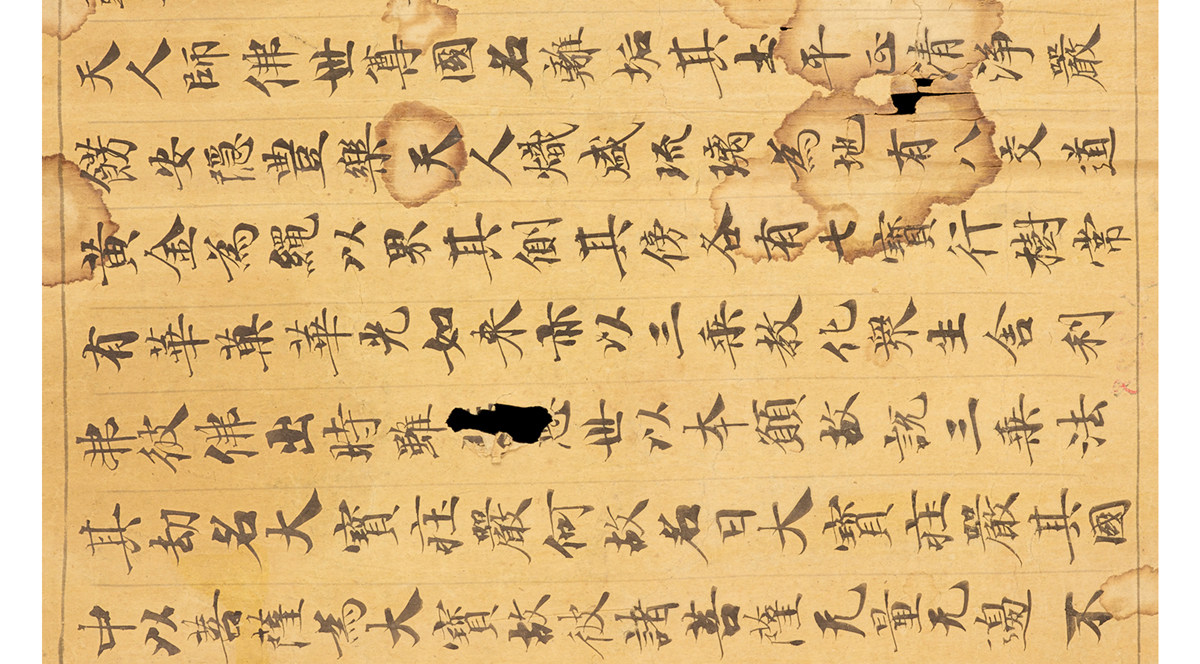 天人師佛世尊國名離垢其土平正清淨嚴
飾安隱豐樂天人熾盛琉璃為地有八交道
黃金為繩以界其側其傍各有七寶行樹常
有華菓華光如來亦以三乘教化眾生舍利
弗彼佛出時雖世以本願故說三乘法
其劫名大寶莊嚴何故名曰大寶莊嚴其國
中以菩薩為大寶故彼諸菩薩无量无邊不